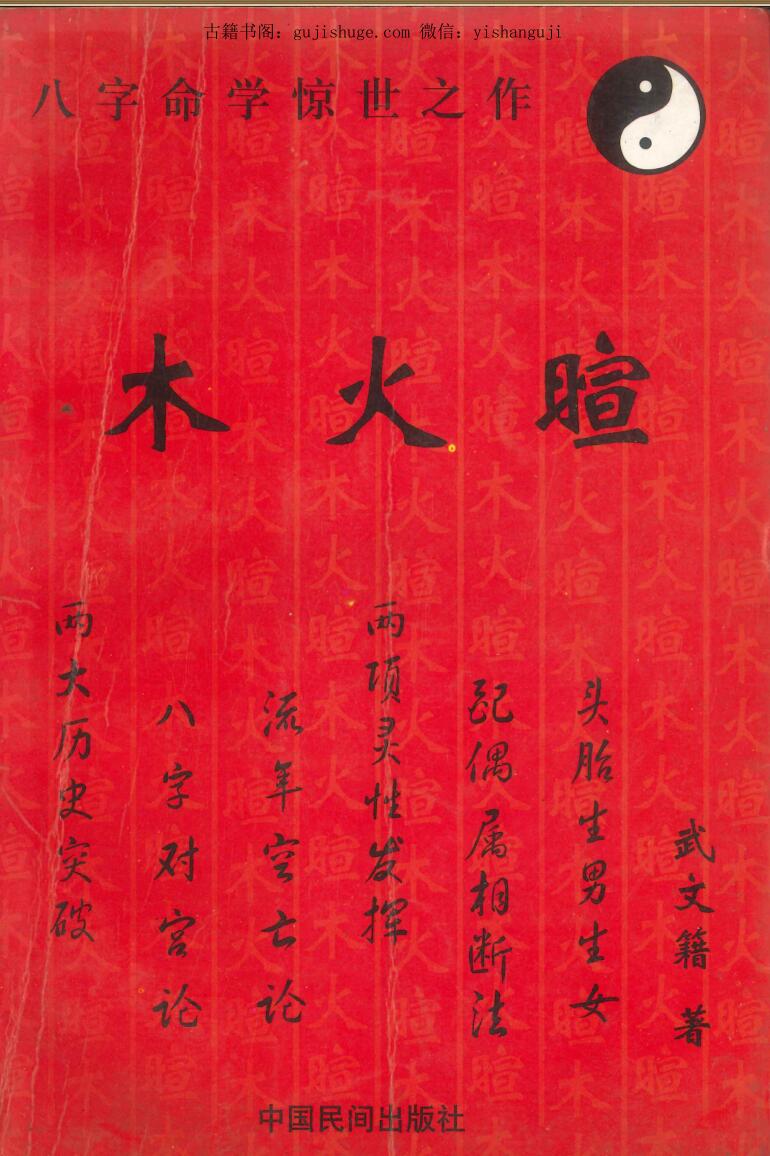 古籍书阁：gujishuge.com 微信：yishanguji
八字命学惊世之作
木火暄
两大历史突破
八字对宫论
流年空亡论
两项灵性发挥
配偶属相断法
头胎生男生女
武文籍 著
中国民间出版社